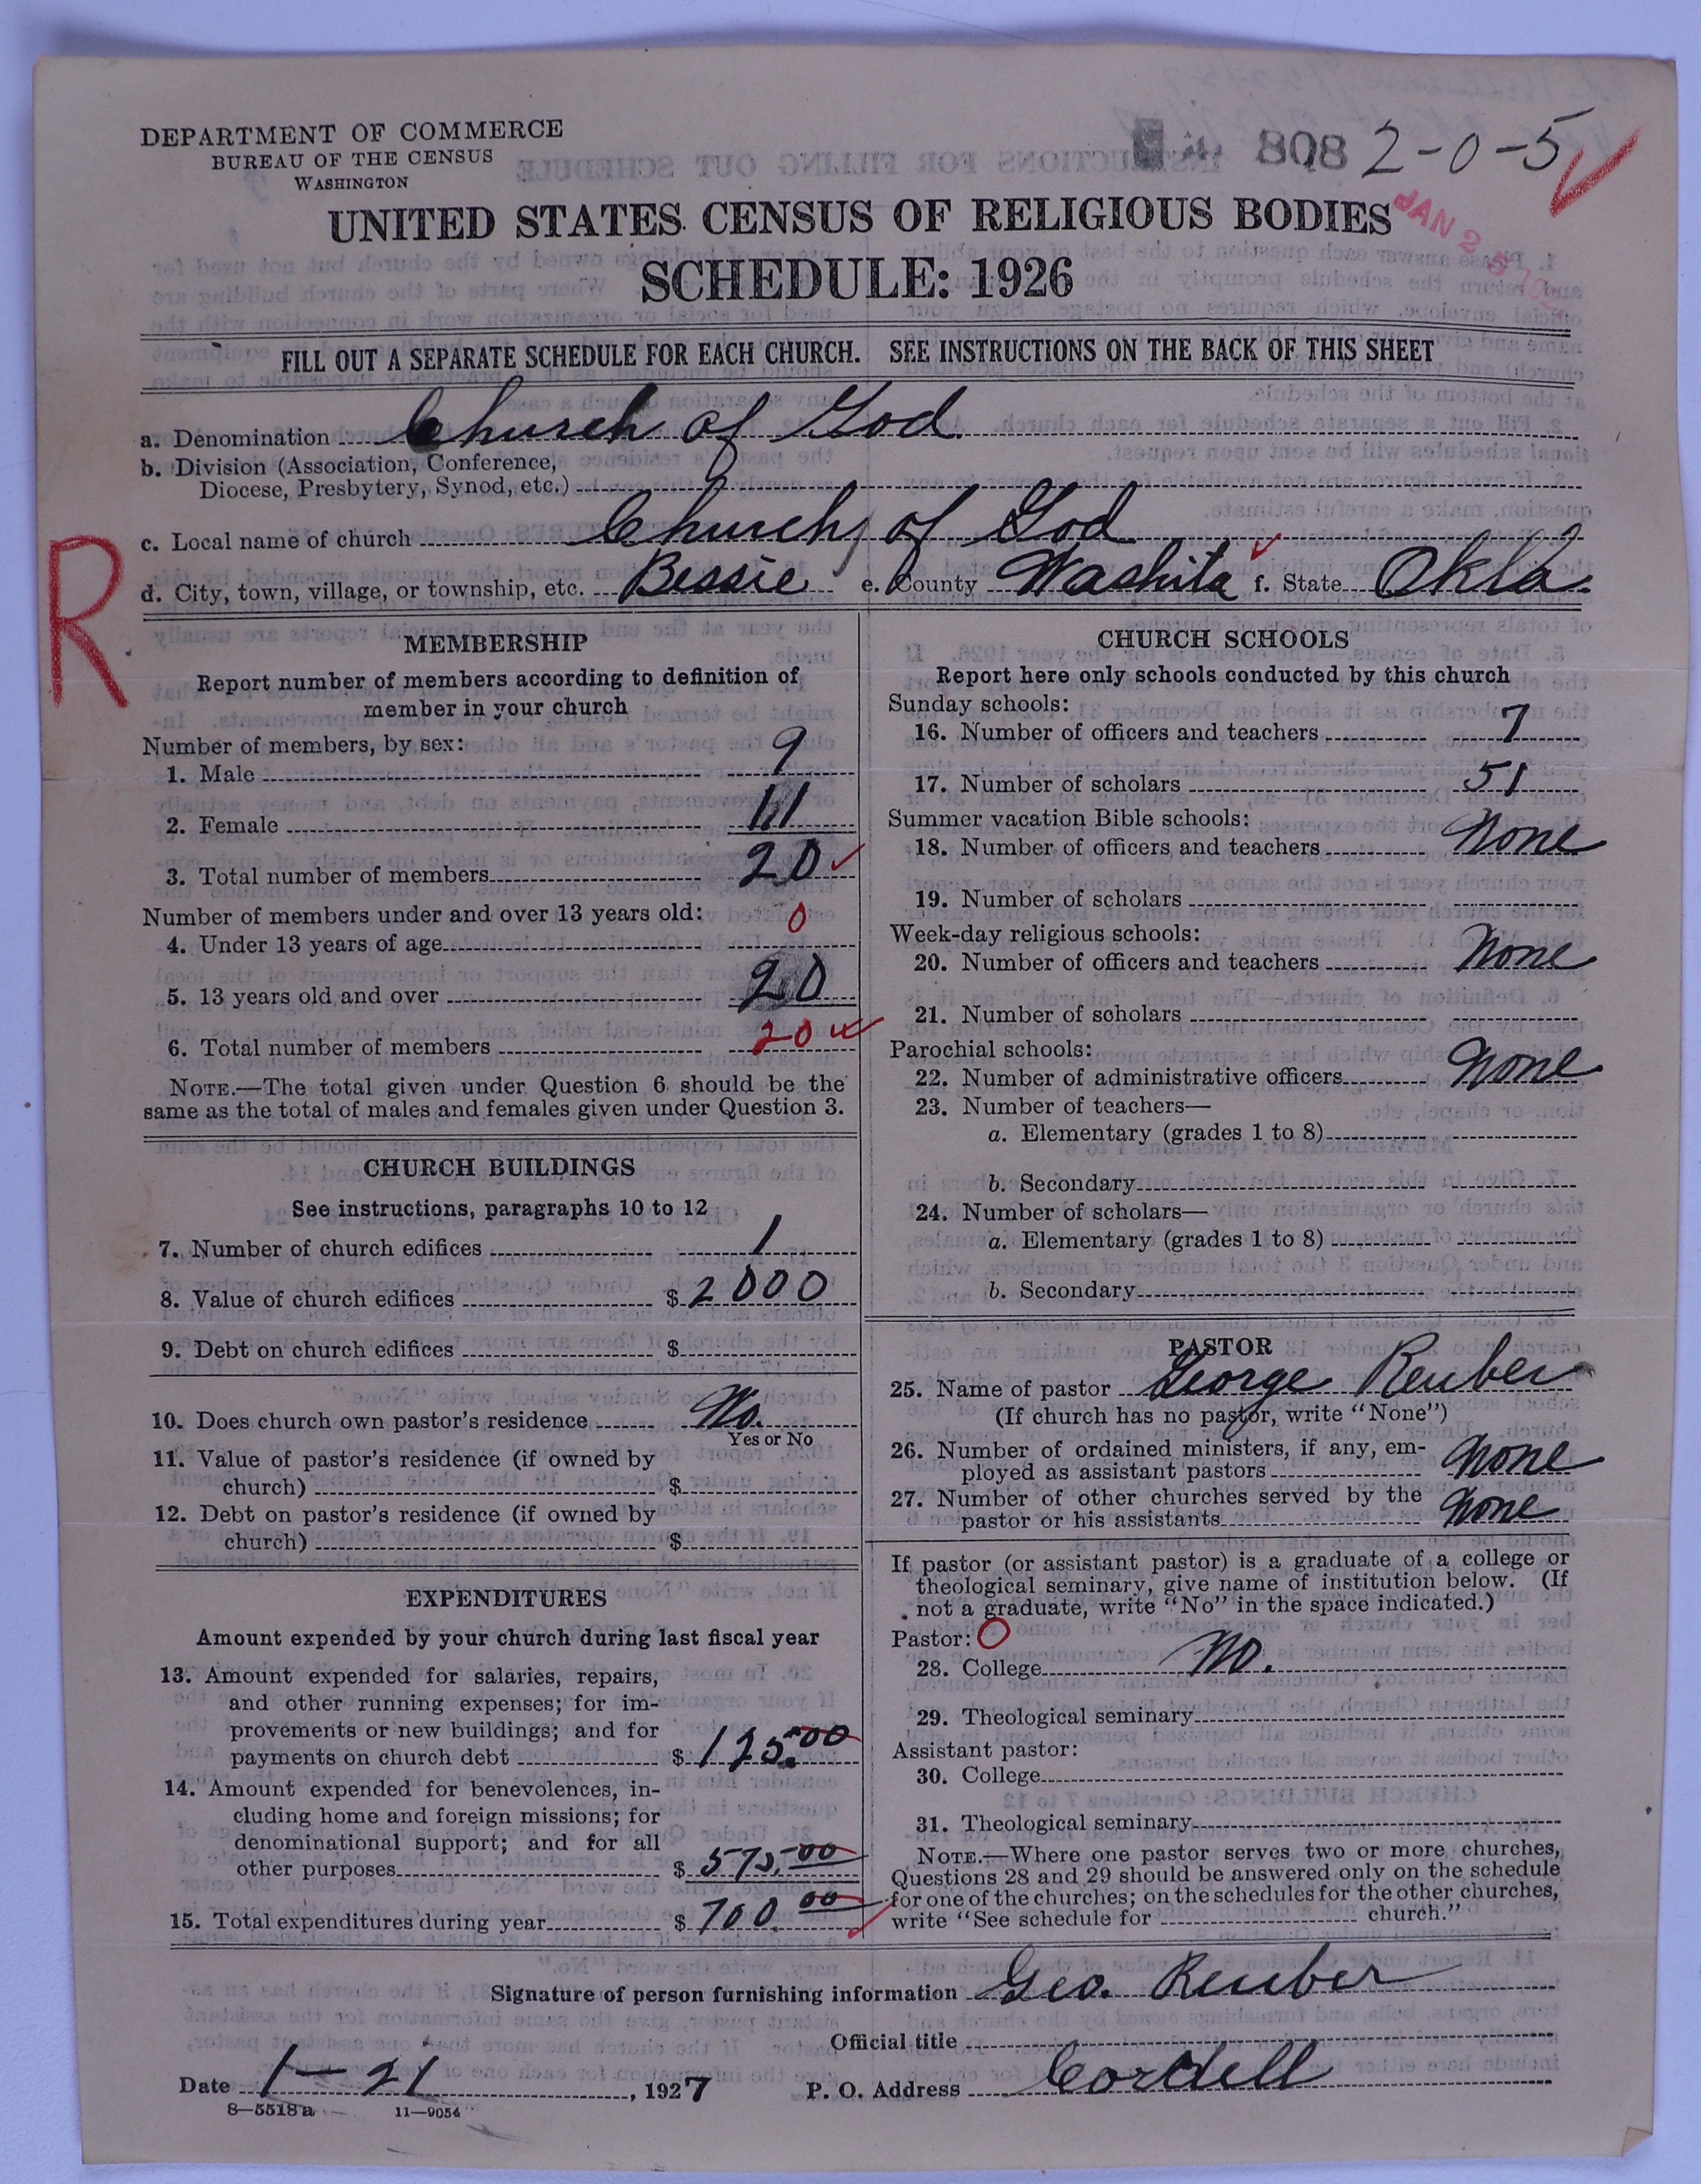 DEPARTMENT OF COMMERCE
BUREAU OF THE CENSUS
WASHINGTON
808 2-0-5
JAN 2
UNITED STATES CENSUS OF RELIGIOUS BODIES
SCHEDULE: 1926
FILL OUT A SEPARATE SCHEDULE FOR EACH CHURCH. SEE INSTRUCTIONS ON THE BACK OF THIS SHEET
a. Denomination Church of God
b. Division (Association, Conference,
Diocese, Presbytery, Synod, etc.)
c. Local name of church Church of God
d. City, town, village, or township, etc. Bessie e. County Washita f. State Okla.
R
MEMBERSHIP
Report number of members according to definition of
member in your church
Number of members, by sex:
1. Male 9
2. Female 11
3. Total number of members 20
Number of members under and over 13 years old:
4. Under 13 years of age 0
5. 13 years old and over 20
6. Total number of members 20
NOTE.—The total given under Question 6 should be the
same as the total of males and females given under Question 3.
CHURCH BUILDINGS
See instructions, paragraphs 10 to 12
7. Number of church edifices 1
8. Value of church edifices $ 2000
9. Debt on church edifices $
10. Does church own pastor's residence No.
Yes or No
11. Value of pastor's residence (if owned by
church) $
12. Debt on pastor's residence (if owned by
church) $
EXPENDITURES
Amount expended by your church during last fiscal year
13. Amount expended for salaries, repairs,
and other running expenses; for im-
provements or new buildings; and for
payments on church debt $ 125.00
14. Amount expended for benevolences, in-
cluding home and foreign missions; for
denominational support; and for all
other purposes $ 575.00
15. Total expenditures during year $ 700.00
CHURCH SCHOOLS
Report here only schools conducted by this church
Sunday schools:
16. Number of officers and teachers 7
17. Number of scholars 51
Summer vacation Bible schools:
18. Number of officers and teachers None
19. Number of scholars
Week-day religious schools:
20. Number of officers and teachers None
21. Number of scholars
Parochial schools:
22. Number of administrative officers None
23. Number of teachers—
a. Elementary (grades 1 to 8)
b. Secondary
24. Number of scholars—
a. Elementary (grades 1 to 8)
b. Secondary
PASTOR
25. Name of pastor George Reuber
(If church has no pastor, write "None")
26. Number of ordained ministers, if any, em-
ployed as assistant pastors None
27. Number of other churches served by the
pastor or his assistants None
If pastor (or assistant pastor) is a graduate of a college or
theological seminary, give name of institution below. (If
not a graduate, write "No" in the space indicated.)
Pastor: O
28. College No.
29. Theological seminary
Assistant pastor:
30. College
31. Theological seminary
NOTE.—Where one pastor serves two or more churches,
Questions 28 and 29 should be answered only on the schedule
for one of the churches; on the schedules for the other churches,
write "See schedule for church."
Signature of person furnishing information Geo. Reuber
Official title
Date 1-21, 1927 P. O. Address Cordell
8-5518a 11-9054